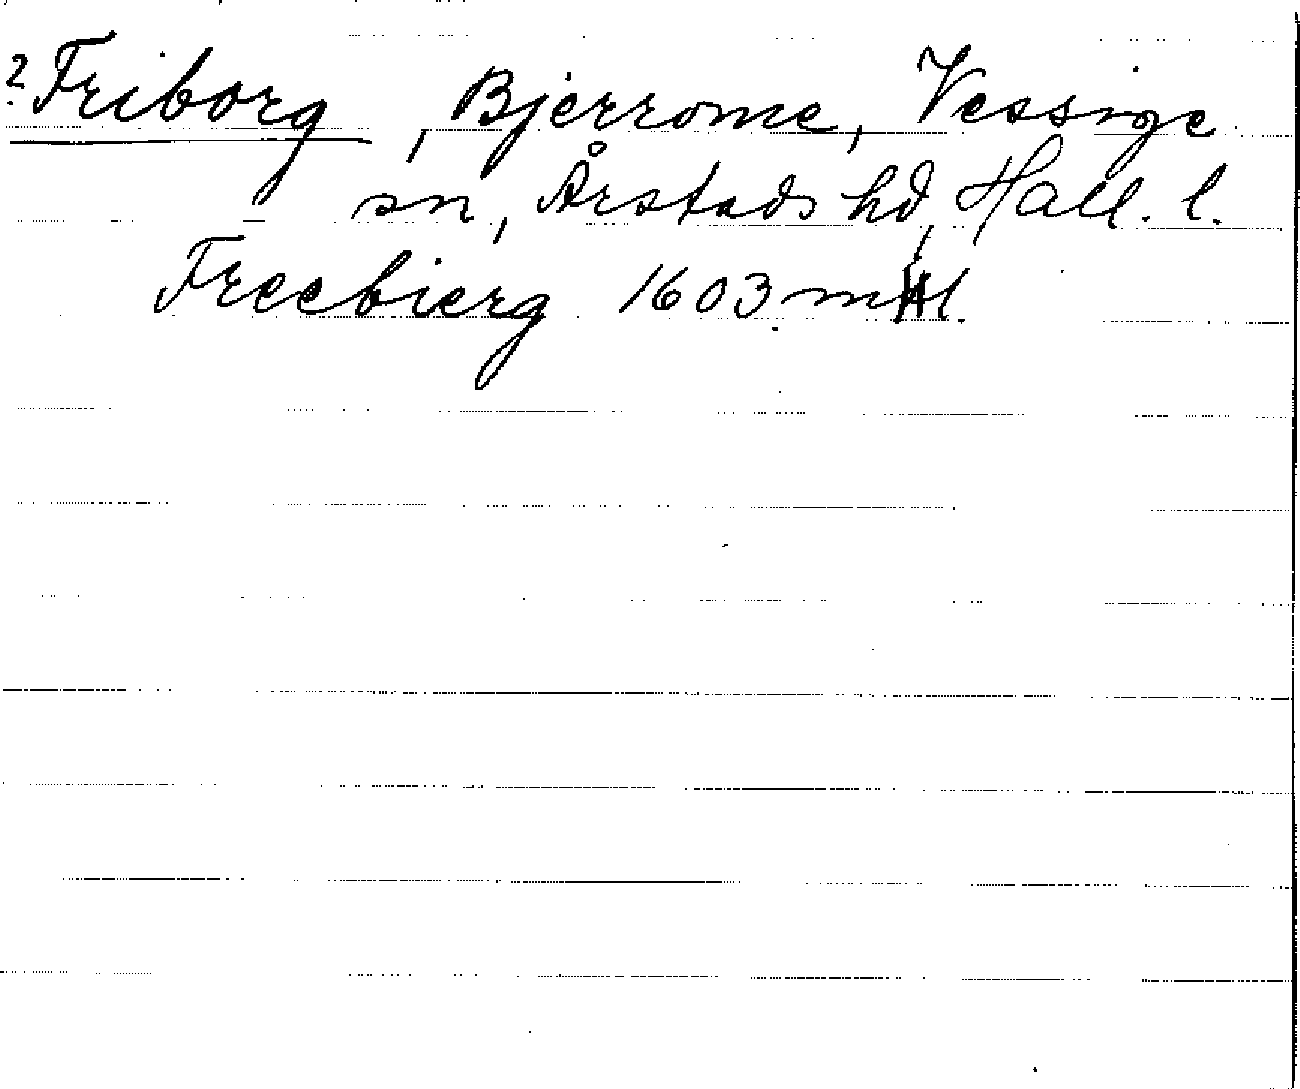 ? Friborg, Bjerrome, Vessige
sn, Årstads hd, Hall. l.
Freebierg 1603